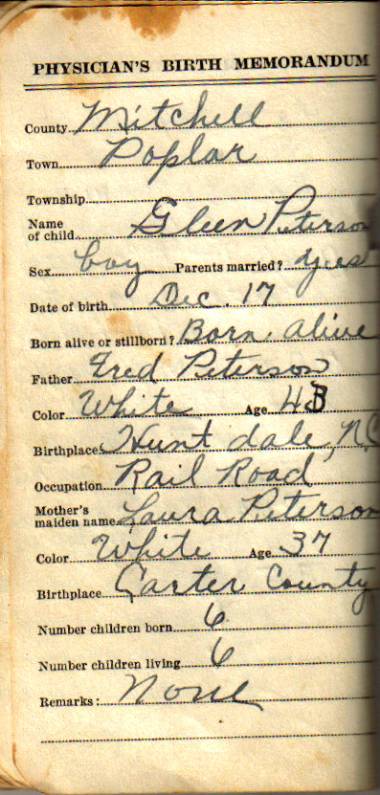 PHYSICIAN'S BIRTH MEMORANDUM
County Mitchell
Town Poplar
Township
Name of child Gleen Peterson
Sex boy Parents married? yes
Date of birth Dec. 17
Born alive or stillborn? Born alive
Father Fred Peterson
Color White Age 43
Birthplace Huntdale, N.C
Occupation Rail Road
Mother's maiden name Laura Peterson
Color White Age 37
Birthplace Carter County
Number children born 6
Number children living 6
Remarks: None